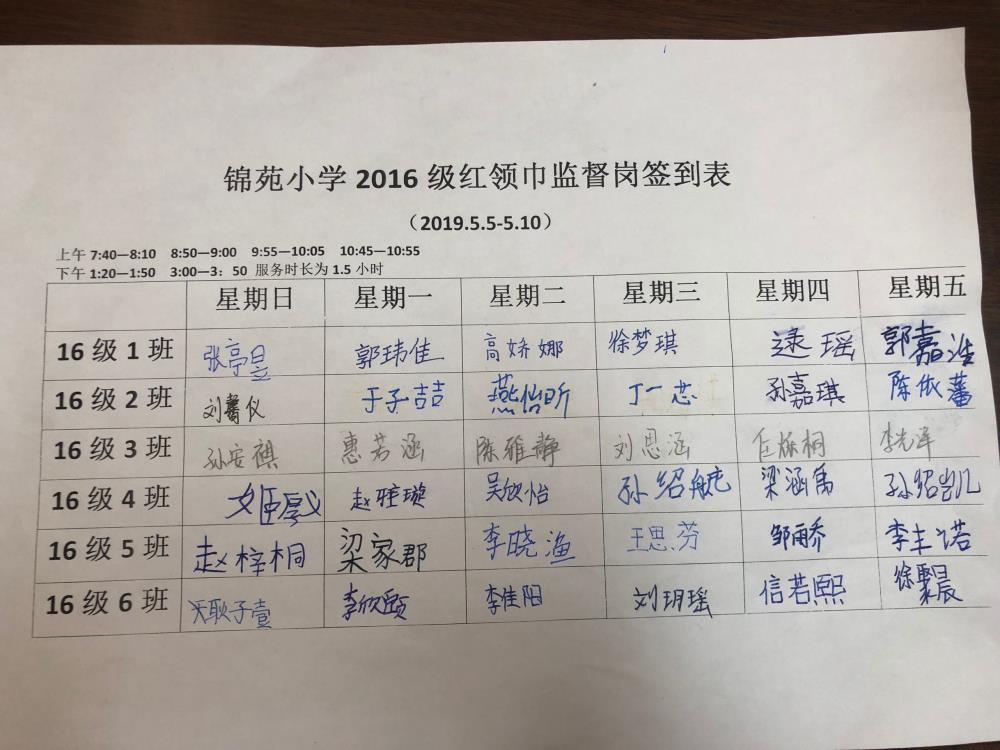 锦苑小学 2016 级红领巾监督岗签到表
（2019.5.5-5.10）
上午 7:40—8:10 8:50—9:00 9:55—10:05 10:45—10:55
下午 1:20—1:50 3:00—3：50 服务时长为 1.5 小时
星期日 星期一 星期二 星期三 星期四 星期五
16 级 1 班 张亭昱 郭玮佳 高娇娜 徐梦琪 逯瑶 郭嘉浩
16 级 2 班 刘馨仪 于子喆 燕怡昕 丁一芯 孙嘉琪 陈依蕃
16 级 3 班 孙安祺 惠芳涵 陈雅静 刘恩涵 任烁桐 李先泽
16 级 4 班 姬厚义 赵雅璇 吴欣怡 孙绍航 梁涵禹 孙绍凯
16 级 5 班 赵梓桐 梁家郡 李晓渔 王思芬 邹雨乔 李主诺
16 级 6 班 耿子壹 李欣颐 李佳阳 刘玥瑶 信若熙 徐聚晨